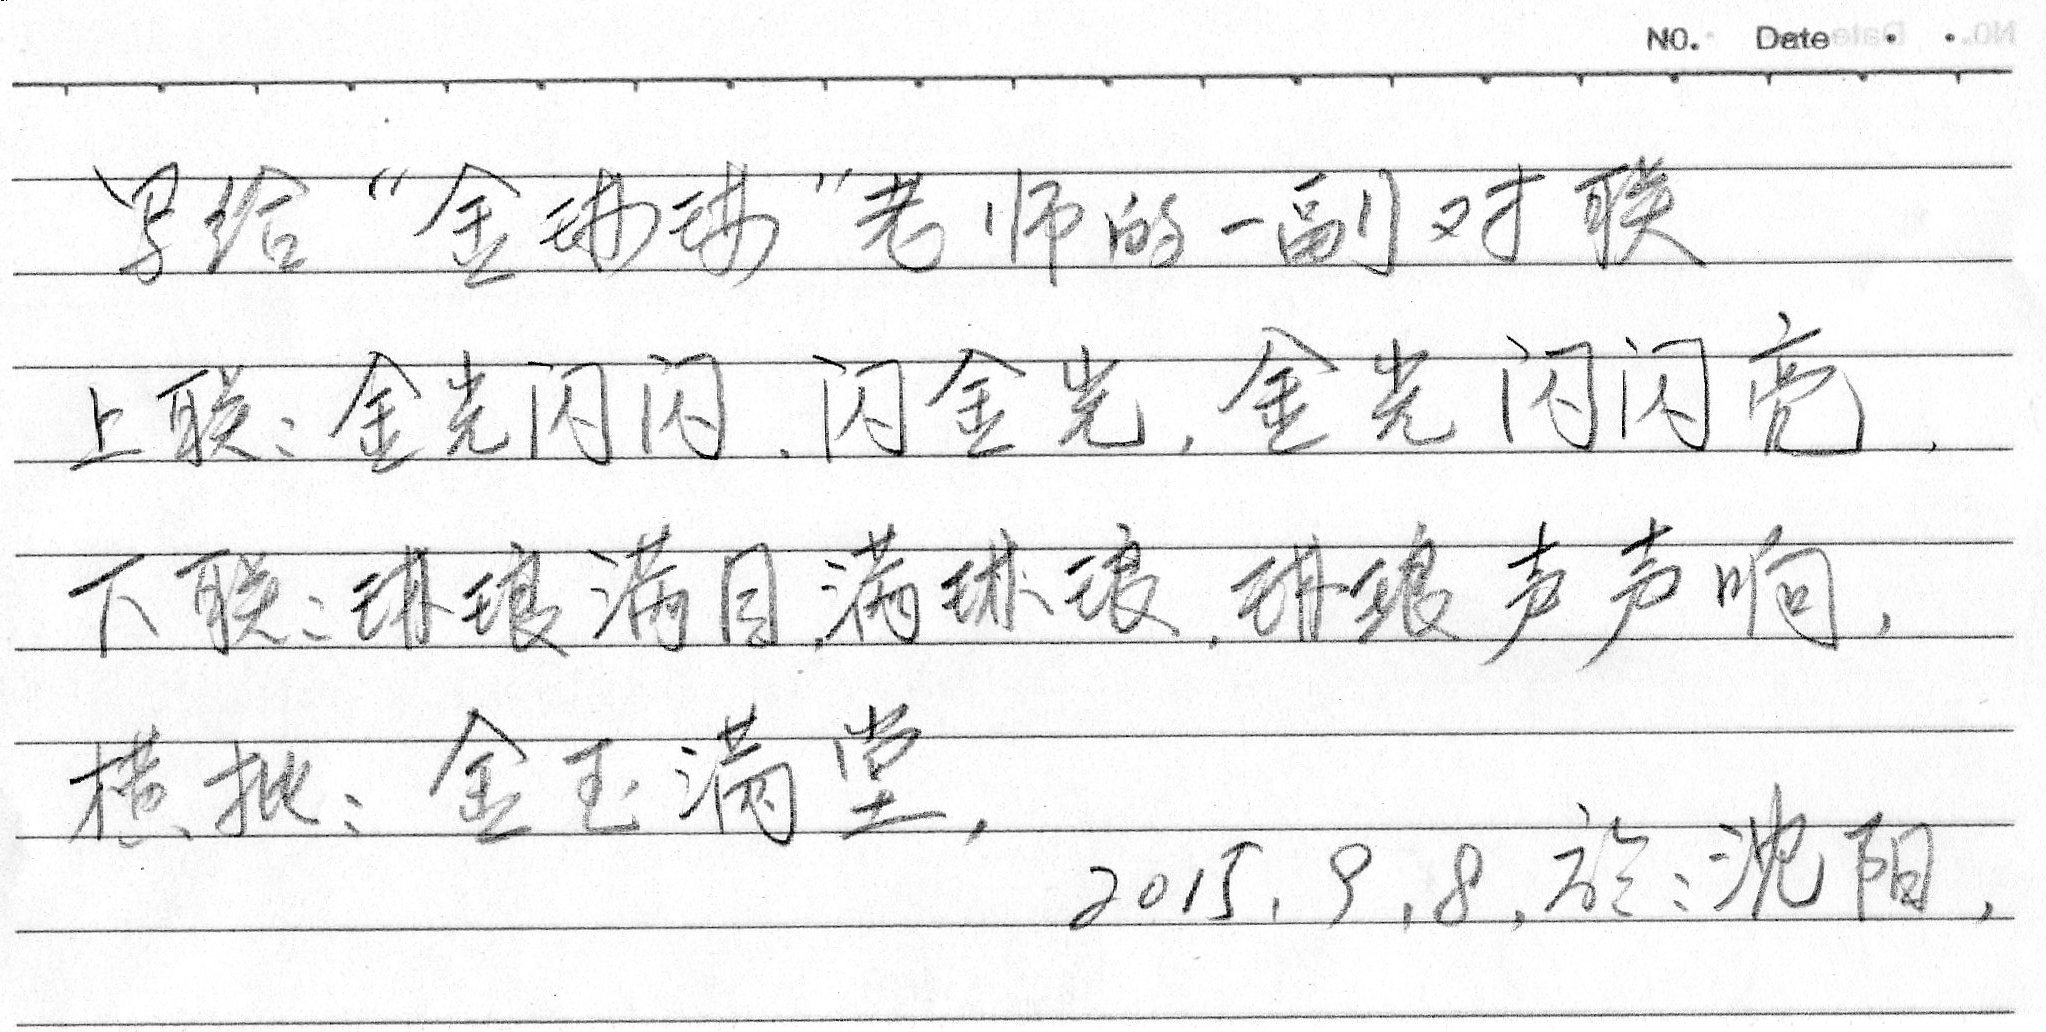 NO.    Date    ·    ·
写给“金琳琳”老师的一副对联
上联：金光闪闪，闪金光，金光闪闪亮，
下联：琳琅满目，满琳琅，琳琅声声响，
横批：金玉满堂，
2015，9，8，於：沈阳，